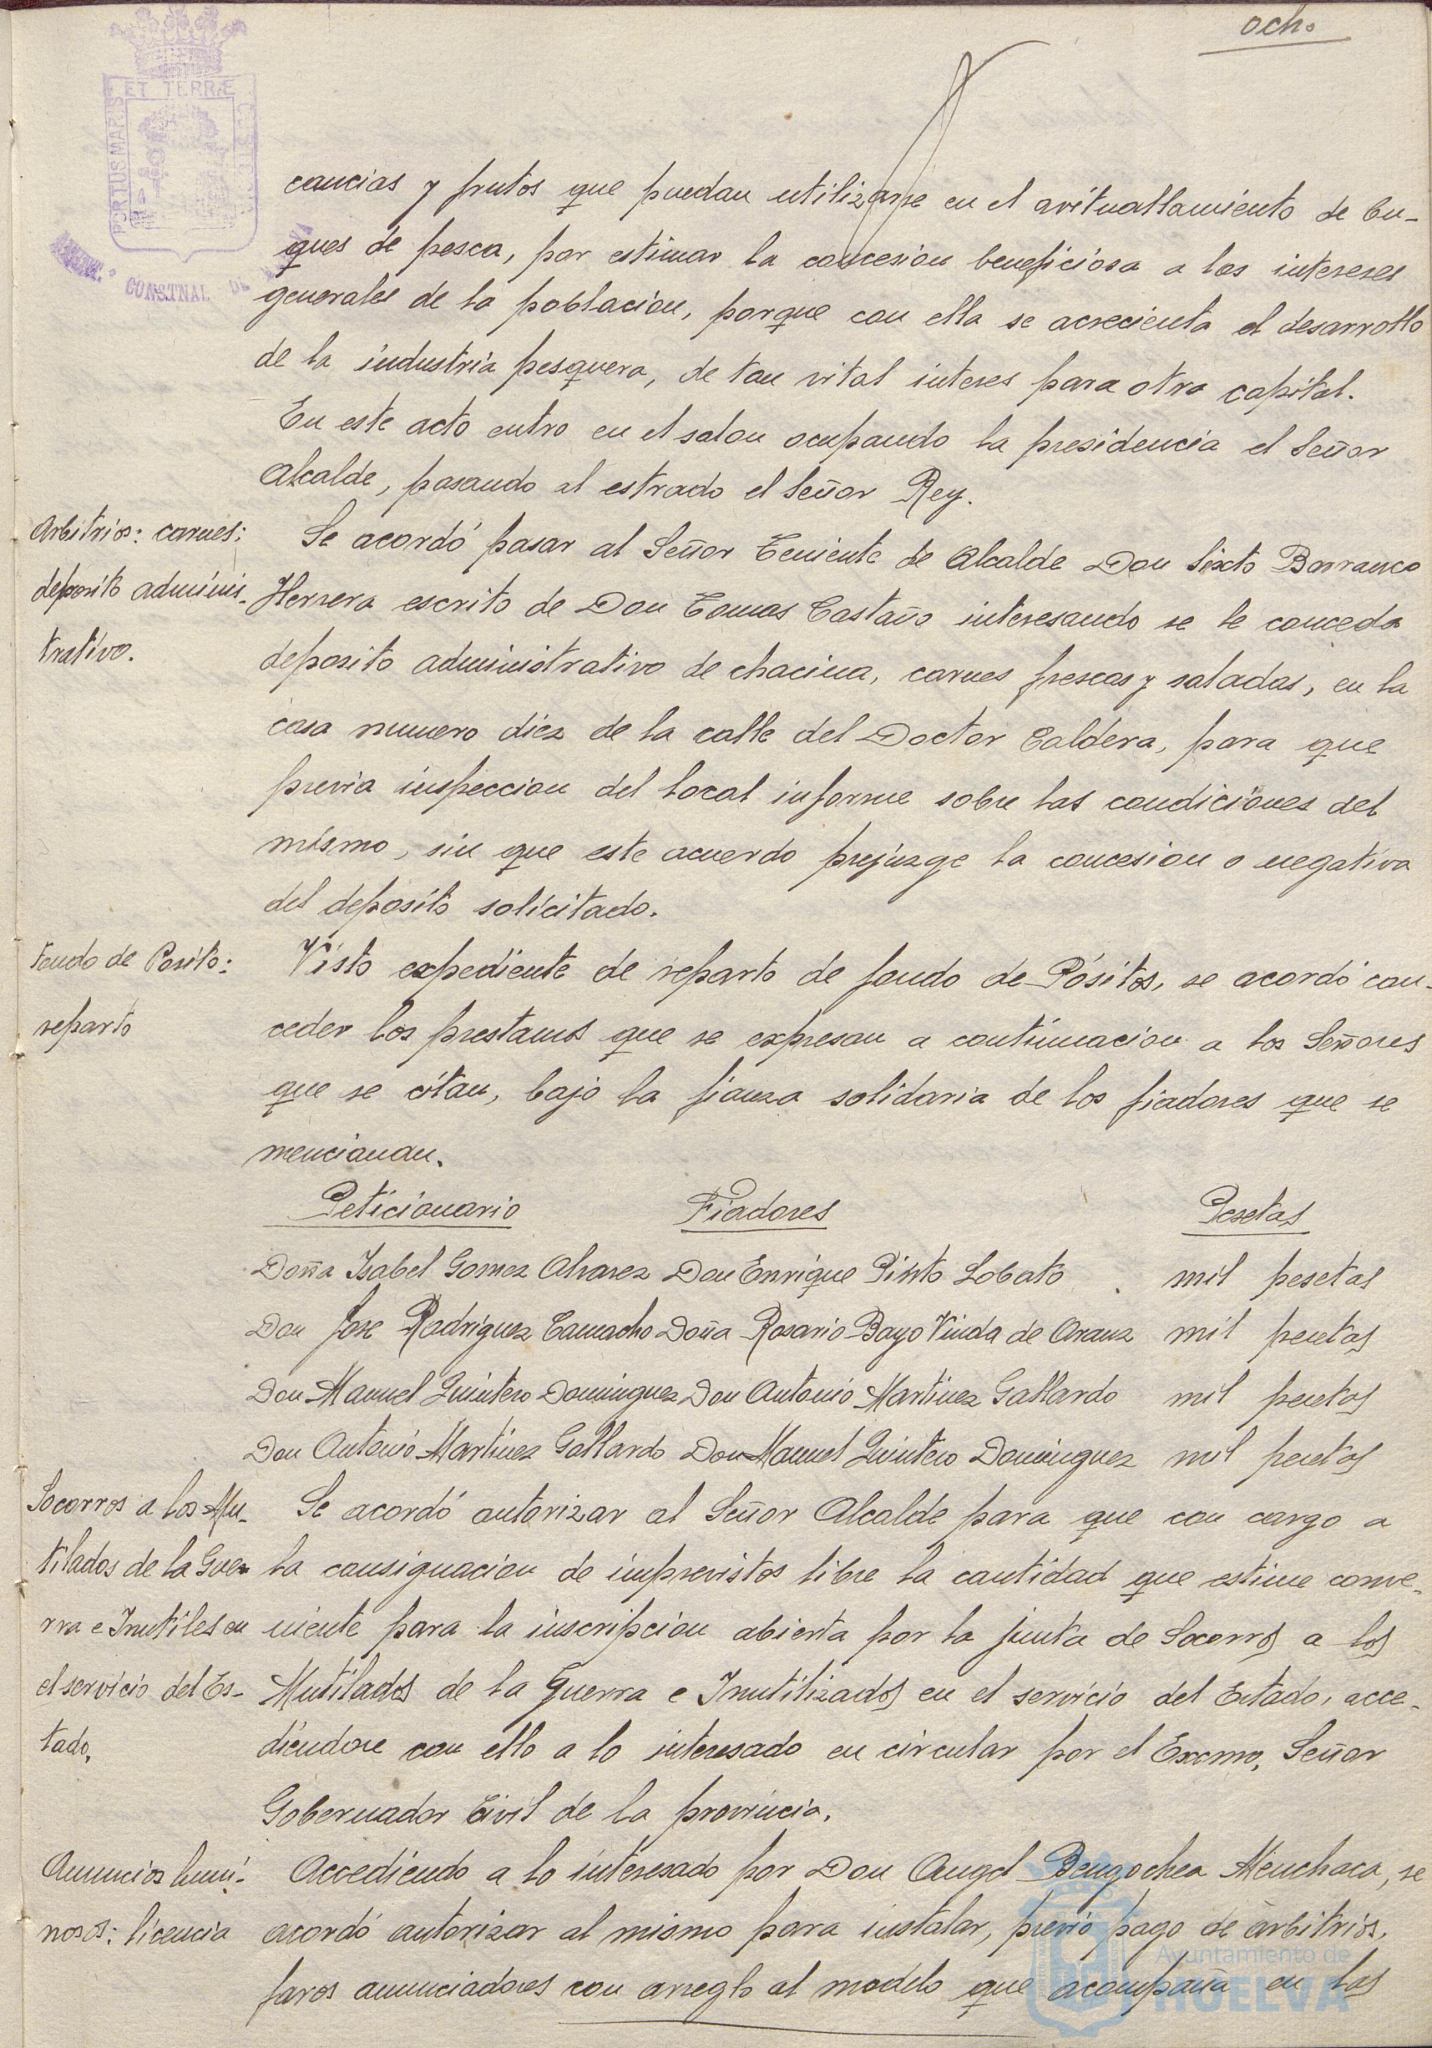 ocho
PORTUS MARIS ET TERRÆ CUSTODIA
CONSTNAL DE
cancias y frutos que puedan utilizarse en el avituallamiento de bu-
ques de pesca, por estimar la concesion beneficiosa a los intereses
generales de la poblacion, porque con ella se acrecienta el desarrollo
de la industria pesquera, de tan vital interes para otra capital.
En este acto entro en el salon ocupando la presidencia el Señor
Alcalde, pasando al estrado el Señor Rey.
Arbitrios: carnes:
deposito adminis-
trativo.
Se acordó pasar al Señor Teniente de Alcalde Don Sixto Barranco
Herrera escrito de Don Tomas Castaño interesando se le conceda
deposito administrativo de chacina, carnes frescas y saladas, en la
casa numero diez de la calle del Doctor Caldera, para que
previa inspeccion del local informe sobre las condiciones del
mismo, sin que este acuerdo prejuzge la concesion o negativa
del deposito solicitado.
Fondo de Posito:
reparto
Visto expediente de reparto de fondo de Pósitos, se acordó con-
ceder los prestamos que se expresan a continuacion a los Señores
que se citan, bajo la fianza solidaria de los fiadores que se
mencionan.
Peticionario Fiadores Pesetas
Doña Isabel Gomez Alvarez Don Enrique Pinto Lobato mil pesetas
Don Jose Rodriguez Camacho Doña Rosario Bayo Viuda de Arauz mil pesetas
Don Manuel Quintero Dominguez Don Antonio Martinez Gallardo mil pesetas
Don Antonio Martinez Gallardo Don Manuel Quintero Dominguez mil pesetas
Socorros a los Mu-
tilados de la Gue-
rra e Inutiles en
el servicio del Es-
tado.
Se acordó autorizar al Señor Alcalde para que con cargo a
la consignacion de imprevistos libre la cantidad que estime conve-
niente para la inscripcion abierta por la junta de Socorros a los
Mutilados de la Guerra e Inutilizados en el servicio del Estado, acce-
diendose con ello a lo interesado en circular por el Excmo. Señor
Gobernador Civil de la provincia.
Anuncios lumi-
nosos: licencia
Accediendo a lo interesado por Don Angel Bengochea Menchaca, se
acordó autorizar al mismo para instalar, previo pago de arbitrios,
faros anunciadores con arreglo al modelo que acompaña en las
Ayuntamiento de
HUELVA